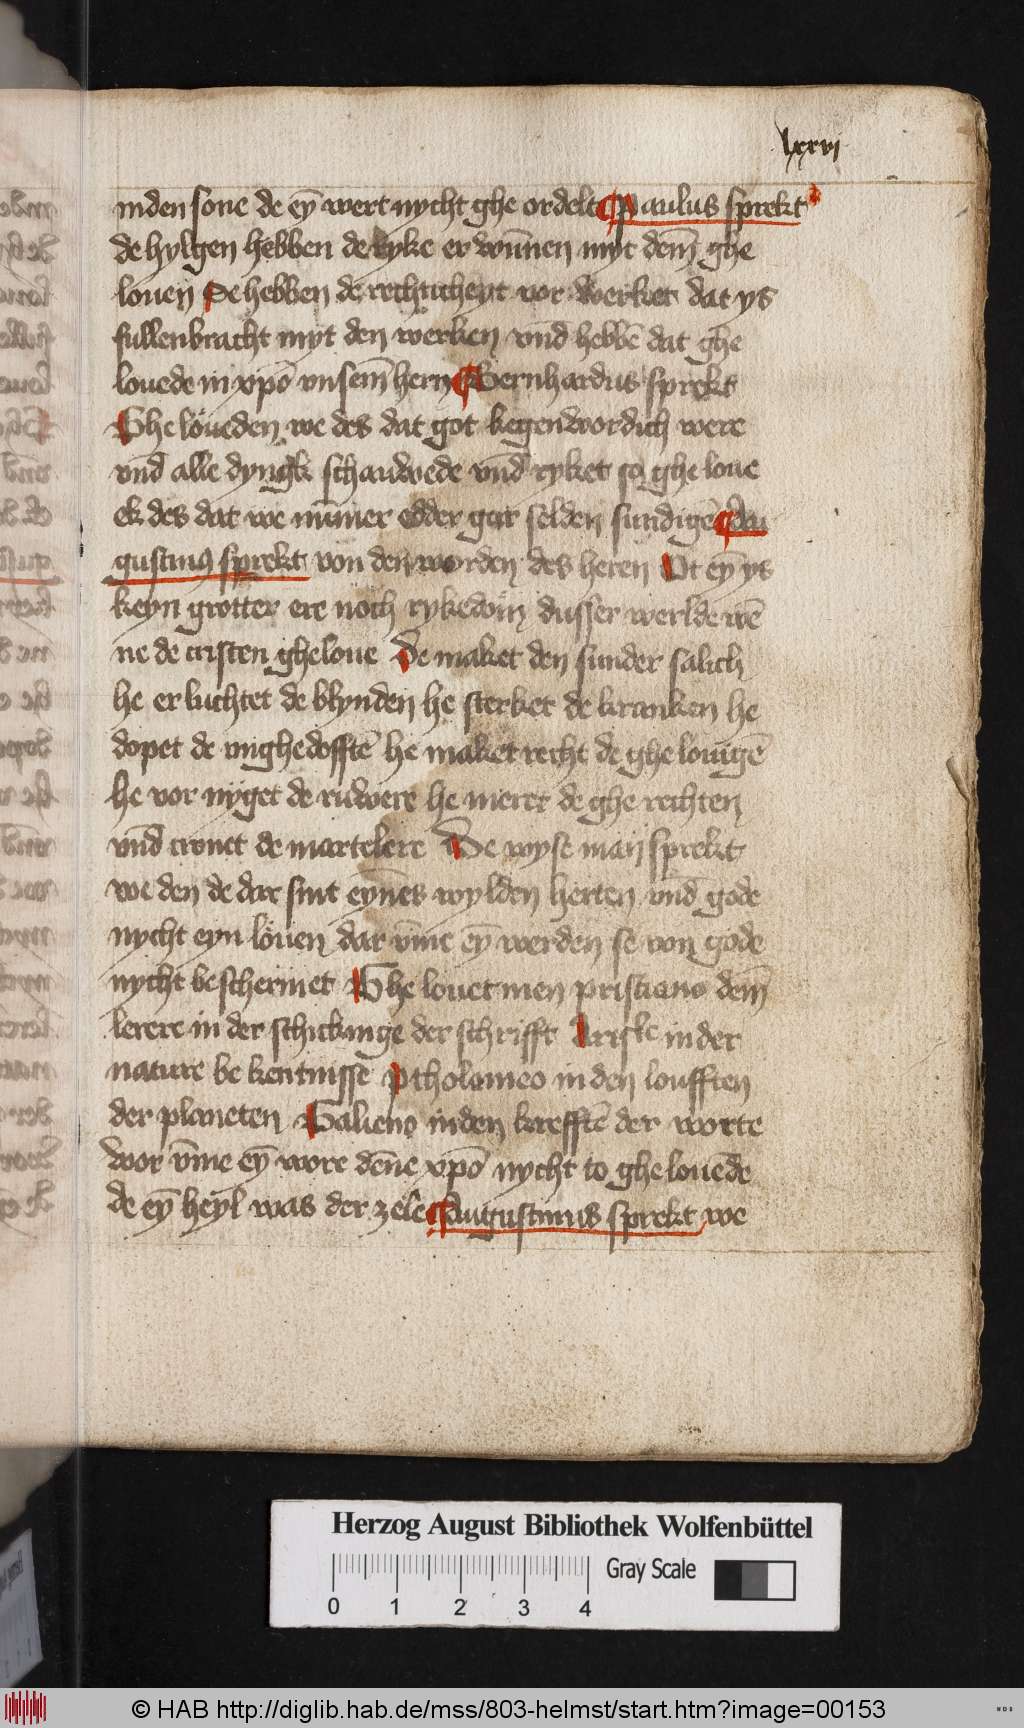 lxxvi
in den sone de ey̅ wert nycht ghe ordelt ¶ Paulus sprekt
de hylgen hebben de ryke er wu̅nen myt dem̅ ghe
louen Se hebben de rechticheyt vor werket dat ys
fullenbracht myt den werken vnd̅ hebbe̅ dat ghe
louede in xpo̅ vnsem̅ hern ¶ Bernhardus sprekt
Ghe loueden we des dat got kegenwordich were
vnd̅ alle dyngk schauwede vnd̅ ryket so ghe loue
ek des dat we num̅er edder gar selden sundige̅ ¶ Au
gustinus sprekt von den worden des heren Et ey̅ ys
keyn grotter ere noch rykedom̅ dusser werlde we̅
ne de cristen gheloue De maket den sunder salich
he er luchtet de blynden he sterket de kranken he
dopet de vnghedoffte̅ he maket recht de ghe louige̅
he vor nyget de ruwere he meret de ghe rechten
vnd̅ cronet de martelere De wyse man sprekt
we den de dar sint eyne̅s wylden herten vnd̅ gode
nycht eyn louen dar v̅me ey̅ werden se von gode
nycht beschermet Ghe louet men pristiano dem̅
lerere in der schickinge der schrifft Aristle in der
nature be kentnisse Ptholomeo in den loufften
der planeten Galieno in den kreffte̅ der worte
wor v̅me ey̅ wore de̅ne xpo̅ nycht to ghe louede
de ey̅ heyl was der zele ¶ Augustinus sprekt we
Herzog August Bibliothek Wolfenbüttel
Gray Scale
0 1 2 3 4
© HAB http://diglib.hab.de/mss/803-helmst/start.htm?image=00153